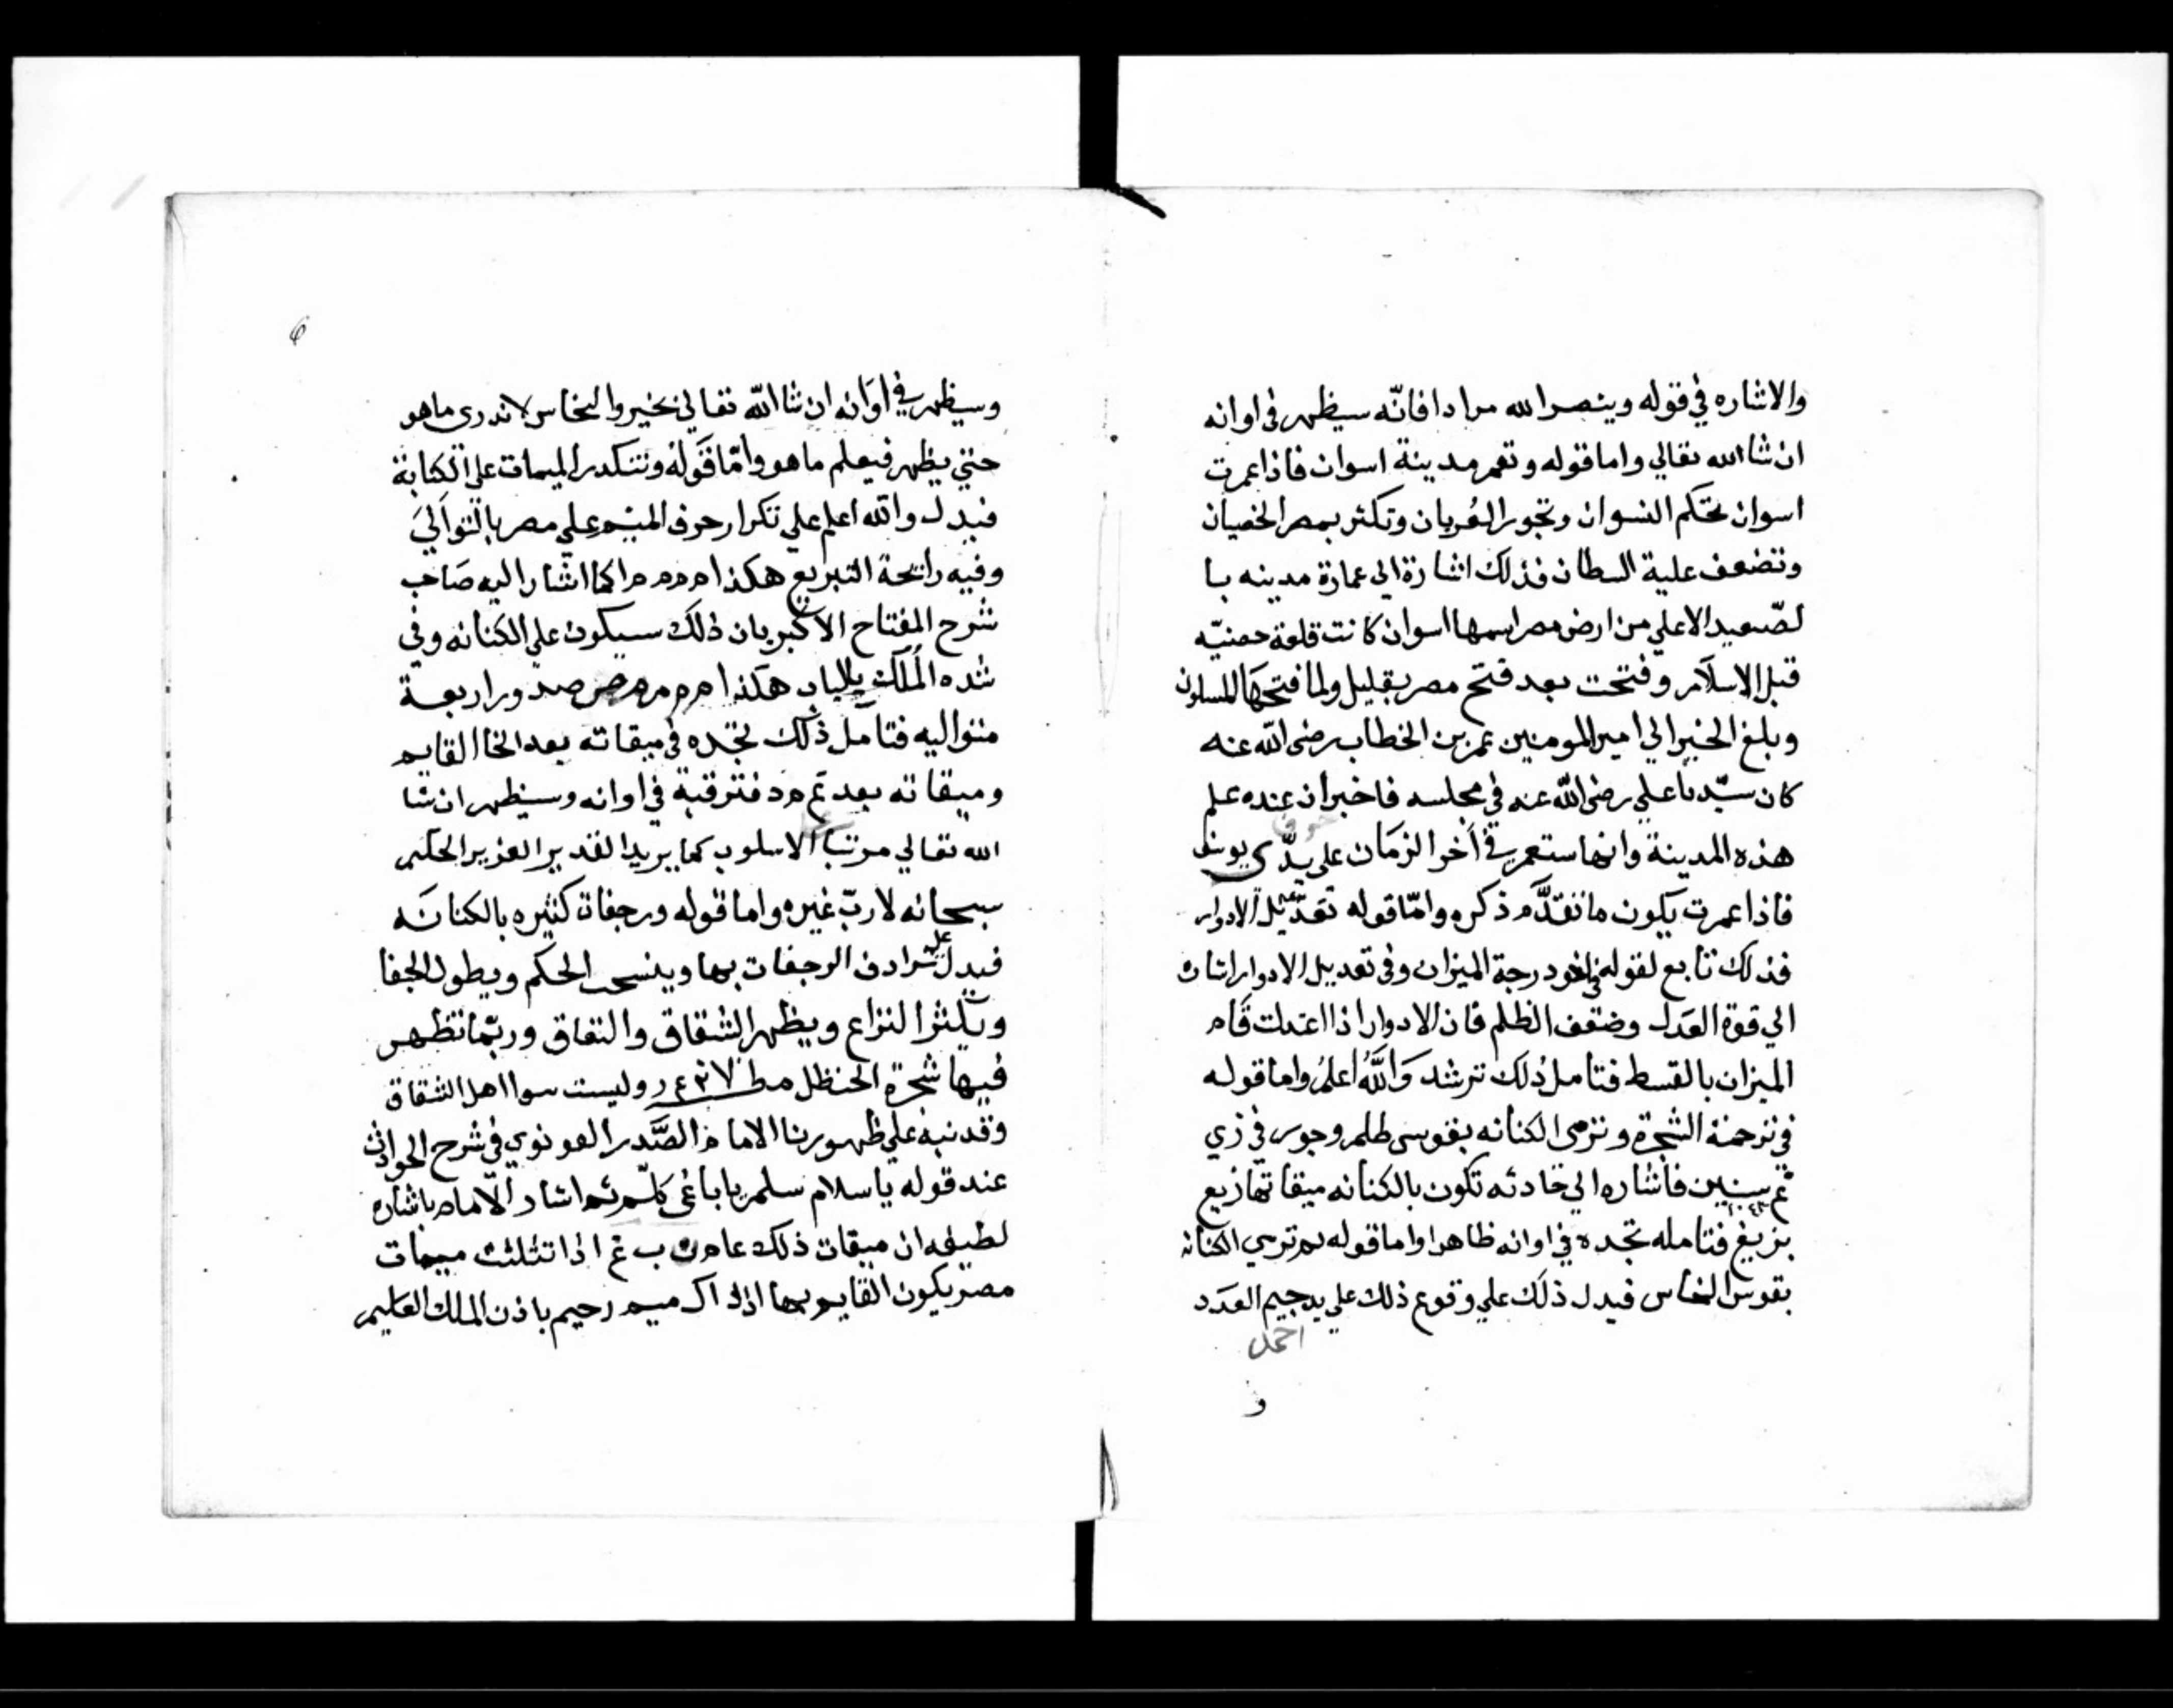 والاشاره في قوله وينصر الله مرادا فانّه سيظهر في اوانه
ان شا الله تعالي واما قوله وتعمر مدينة اسوان فاذا عمرت
اسوان تحكم النسوان وتجور العُربان وتكثر بمصر الخصيان
وتضعف علية السطان فذلك اشارة الي عمارة مدينه با
لصّعيد الاعلي من ارض مصر اسمها اسوان كانت قلعة حصنيّه
قبل الاسلام وفتحت بعد فتح مصر بقليل ولما فتحها المسلون
وبلغ الخبر الي امير المومنين عمر بن الخطاب رضى الله عنه
كان سيّدنا علي رضى الله عنه في مجلسه فاخبر ان عنده علم
هذه المدينة وانها ستعمر في آخر الزمان على يدّ ى يوسف
فاذا عمرت يكون ما تقدَّم ذكره وامّا قوله تعديل الادوار
فذلك تابع لقوله درجة الميزان وفي تعديل الادوار اشاره
الي قوة العدل وضعف الظلم فان الادوار اذا اعتدلت قام
الميزان بالقسط فتامل ذلك ترشد وَاللَّهُ أعلمُ واما قوله
في ترجمة الشجرة وترمى الكنانه بقوسى ظلم وجور في زي
سنين فاشاره الي حادثه تكون بالكنانه ميقاتها زيع
بزيغ فتامله تجده في اوانه ظاهرا واما قوله ثم ترمى الكنانه
بقوس النحاس فيدل ذلك علي وقوع ذلك علي يد جيم العدد
احمد
و
6
وسيظهر في اوانه ان شا الله تعالي بخير والنحاس لا ندرى ماهو
حتي يظهر فيعلم ما هو وامّا قوله وتتكدر الميمات على الكنانة
فيدل والله اعلم علي تكرار حرف الميم علي مصر بالتوالي
وفيه رايحة التبريع هكذا م م م م كما اشار اليه صاحب
شرح المفتاح الاكبر بان ذلك سيكون على الكنانه وفي
هكذا م م م م صدور اربعة
متواليه فتامل ذلك تجده في ميقاته بعد الخا القايم
وميقاته بعد فترقبه في اوانه وسيظهر ان شا
الله تعالي مرتبا الاسلوب كما يريد القدير العزيز الحكيم
سبحانه لا ربّ غيره واما قوله ورجفات كثيره بالكنانه
فيدل على ترادف الرجفات بها وينسحب الحكم ويطول الجفا
ويكثر النزاع ويظهر الشقاق والنفاق وربّما تظهر
فيها شجرة الحنظل وليست سوا اهل الشقاق
وقد نبه علي ظهورنا الامام الصَّدر القونوي في شرح الحوادث
عند قوله يا سلام سلم ثم اشار الامام باشاره
لطيفه ان ميقات ذلك عام ب غ اذا تثلثت ميمات
مصر يكون القايم بها اذ ذاك ميم رحيم باذن الملك العليم